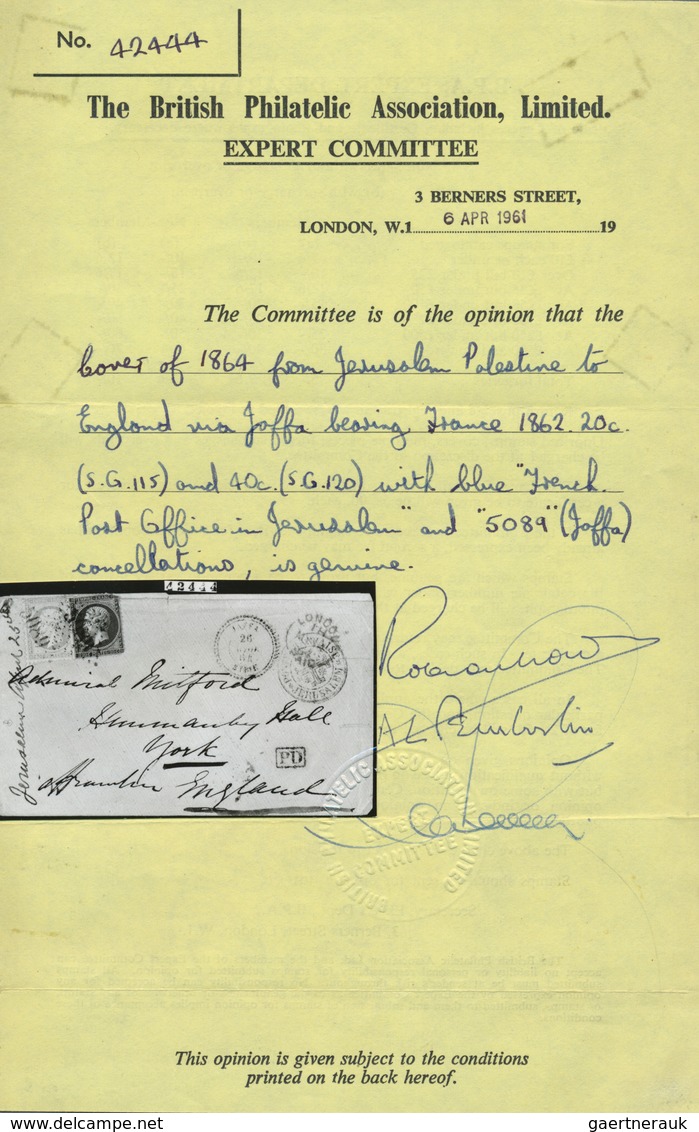 No. 42444
The British Philatelic Association, Limited.
EXPERT COMMITTEE
3 BERNERS STREET,
LONDON, W.1 6 APR 1961 19
The Committee is of the opinion that the
Cover of 1864 from Jerusalem Palestine to
England via Jaffa bearing France 1862. 20c.
(S.G.115) and 40c. (S.G.120) with blue "French
Post Office in Jerusalem" and "5089" (Jaffa)
cancellations, is genuine.
42444
LONDON
26
JERUSALEM
Admiral Mitford
Hunmanby Hall
York
PD
England
Jerusalem
PHILATELIC ASSOCIATION LIMITED
BRITISH
EXPERT
COMMITTEE
This opinion is given subject to the conditions
printed on the back hereof.
gaertnerauk